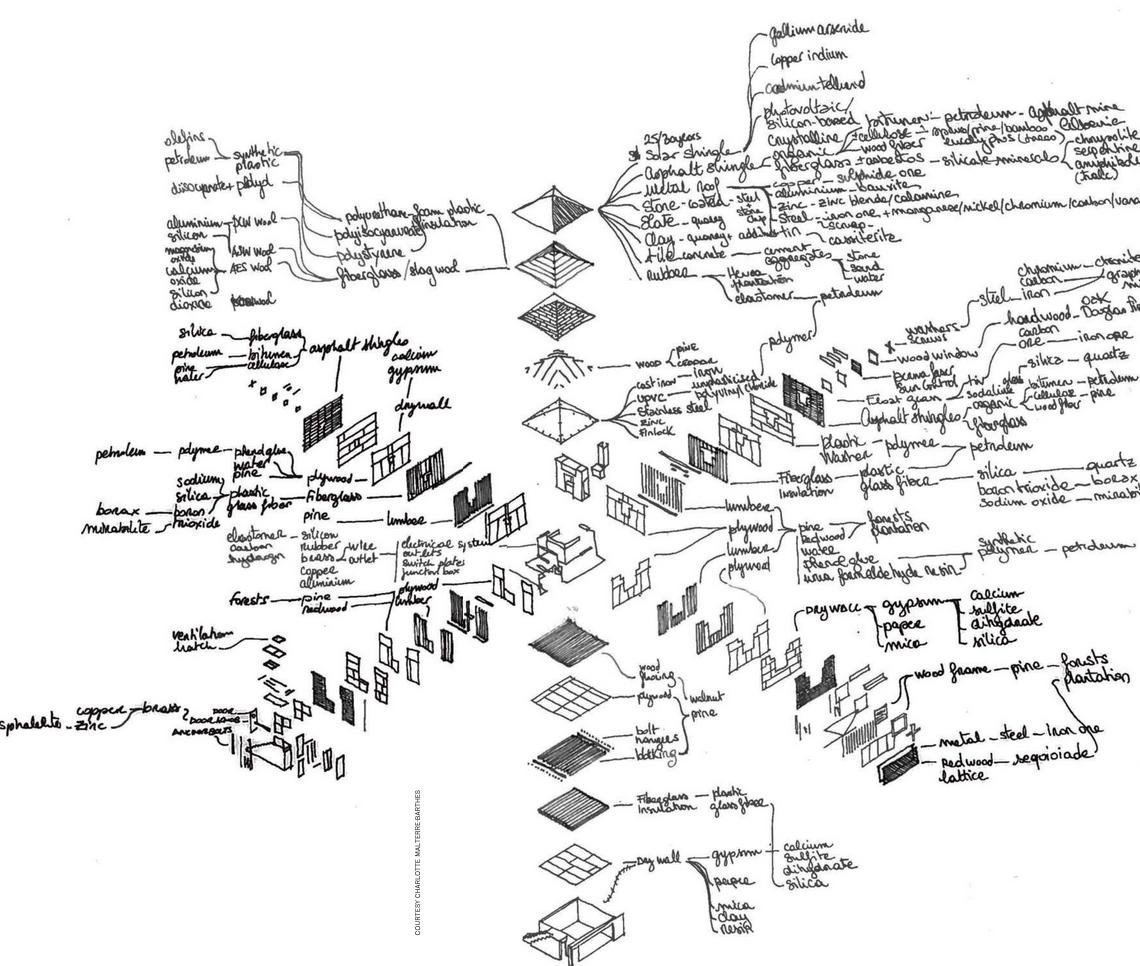 gallium arsenide
copper indium
photovoltaic/
silicon-based
crystalline
bitumen - petroleum - asphalt mine
organic
cellulose
wood fiber
fiberglass + asbestos - silicate minerals
chrysolite
serpentine
(talc)
25/30years
Solar Shingle
Asphalt shingle
Metal Roof
Stone-coated - steel
+ stone
Slate - quarry
Clay - quarry + additi
tile - concrete - cement
aggregates
stone
sand
water
rubber
Hevea
plantation
elastomer
petroleum
aluminium - bauxite
zinc - zinc blende/calamine
steel - iron ore + manganese/nickel/chromium/carbon/vana
scrap
tin
olefins
petroleum
synthetic
plastic
aluminium
silicon
magnesium
oxide
calcium
oxide
silicon
dioxide
AES wool
polyurethane-foam plastic
polyisocyanurate
insulation
polystyrene
fiberglass/slag wool
silica - fiberglass
petroleum - bitumen
pine
water
cellulose
asphalt shingles
calcium
gypsum
drywall
wood
pine
cast iron - iron
UPVC
polyvinyl chloride
Stainless steel
zinc
polymer
washers
screws
steel - iron
chromium
carbon
wood window
hardwood
oak
Douglas
carbon
ore - iron ore
sun control
tin
glass
silica - quartz
Asphalt shingles
organic
bitumen - petroleum
cellulose - pine
wood fiber
fiberglass
plastic
washer
polymer
petroleum
Fiberglass
Insulation
plastic
glass fiber
silica - quartz
boron trioxide - borax
sodium oxide
petroleum - polymer
water
pine
plywood
sodium
silica
borax
boron
trioxide
mirabilite
plastic
glass fiber
Fiberglass
pine - lumber
elastomer
carbon
hydrogen
silicon
rubber
brass
copper
aluminium
wire
outlet
electrical system
outlets
switch plates
junction box
forests
pine
redwood
plywood
lumber
lumber
plywood
lumber
plywood
pine
Redwood
water
phenol glue
urea formaldehyde resin
forests
plantation
synthetic
polymer - petroleum
DRYWALL
gypsum
paper
mica
calcium
sulfite
dihydrate
silica
wood frame - pine - forests
plantation
metal - steel - iron ore
Redwood
lattice
sequoioiade
ventilation
hatch
copper
zinc
brass
DOOR
DOOR KNOB
ANCHOR BOLTS
wood
plywood
walnut
pine
bolt
hangers
blocking
Fiberglass
Insulation
plastic
glass fiber
Dry wall
gypsum
calcium
sulfite
dihydrate
silica
paper
mica
clay
resin
COURTESY CHARLOTTE MALTERRE BARTHES